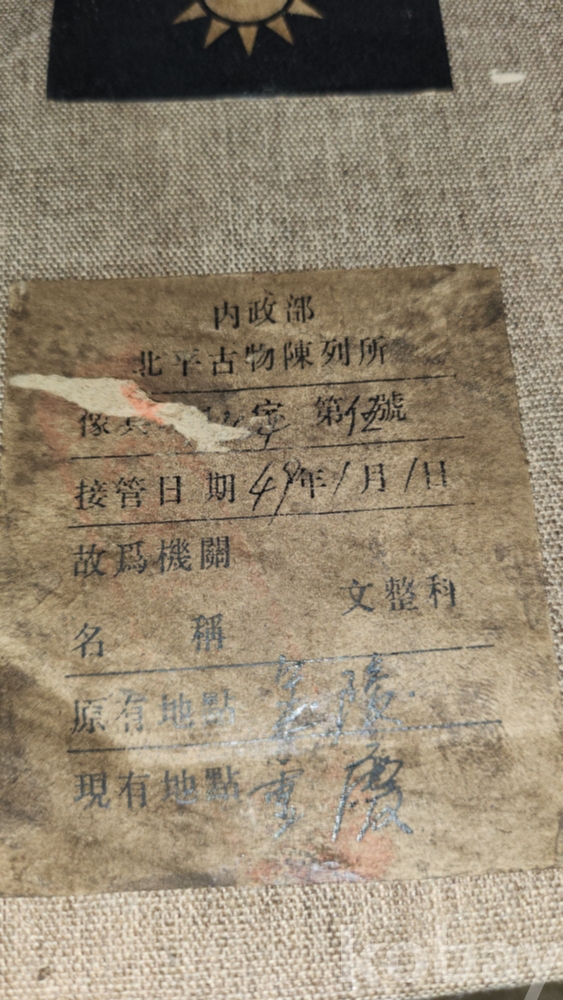 内政部
北平古物陳列所
傢具 字 第伍號
接管日期49年1月1日
故爲機關
文整科
名稱
原有地點 陵
現有地點 重慶